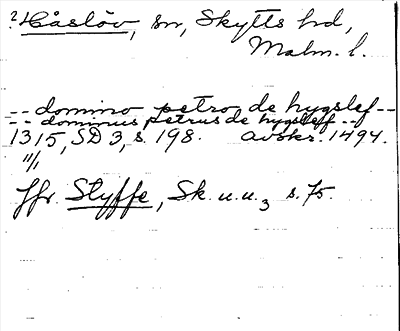 ? Håslöv, sn, Skytts hd,
Malm. l.
-- domino petro de hygslef --
-- dominus petrus de hygsleff --
1315, SD 3, s. 198. avskr. 1494.
11/1
Jfr. Styffe, Sk. u. u. 3 s. 75.